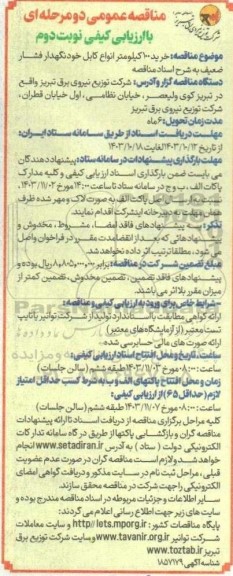 مناقصه عمومی دو مرحله ای
با ارزیابی کیفی نوبت دوم
موضوع مناقصه: خرید ۱۰۰ کیلومتر انواع کابل خودنگهدار فشار
ضعیف به شرح اسناد مناقصه
دستگاه مناقصه گزار و آدرس: شرکت توزیع نیروی برق تبریز واقع
در تبریز کوی ولیعصر، خیابان نظامی، اول خیابان قطران،
شرکت توزیع نیروی برق تبریز
مدت زمان تحویل: ۶ ماه
مهلت دریافت اسناد از طریق سامانه ستاد ایران:
از تاریخ ۱۴۰۳/۱۰/۱۲ لغایت ۱۴۰۳/۱۰/۱۸
مهلت بارگذاری پیشنهادات در سامانه ستاد: پیشنهاد دهندگان
می بایست ضمن بارگذاری اسناد ارزیابی کیفی و کلیه مدارک
پاکات الف، ب و ج در سامانه ستاد تا ساعت ۱۴:۰۰ مورخ ۱۴۰۳/۱۱/۰۲
پاکت الف به صورت لاک و مهر شده ظرف
همان مهلت به دبیرخانه اینشرکت اقدام نمایند.
تذکر: به پیشنهادهای فاقد امضا، مشروط، مخدوش و
پیشنهادهائی که بعد از انقضا مدت مقرر در فراخوان واصل
می شود، مطلقا ترتیب اثر داده نخواهد شد.
مبلغ تضمین شرکت در مناقصه: برابر ۸,۸۰۵,۰۰۰,۰۰۰ ریال بوده و
پیشنهاد های فاقد تضمین، تضمین مخدوش، تضمین کمتر از
میزان مقرر بلااثر می باشند.
شرایط خاص برای ورود به ارزیابی کیفی و مناقصه:
ارائه گواهی مطابقت با استاندارد تولید از شرکت توانیر یا تایپ
تست معتبر (از آزمایشگاه های معتبر)
ارائه صورت های مالی حسابرسی شده
ساعت، تاریخ و محل افتتاح اسناد ارزیابی کیفی:
ساعت ۰۸:۰۰ مورخ ۱۴۰۳/۱۱/۰۳ طبقه ششم (سالن جلسات)
زمان و محل افتتاح پاکتهای الف و ب به شرط کسب حداقل امتیاز
لازم (حداقل ۶۵) از ارزیابی کیفی:
ساعت ۰۸:۰۰ مورخ ۱۴۰۳/۱۱/۰۷ طبقه ششم (سالن جلسات)
کلیه مراحل برگزاری مناقصه از دریافت اسناد تا ارائه پیشنهادات
مناقصه گران و بازگشایی پاکتها از طریق درگاه سامانه تدارکات
الکترونیکی دولت (ستاد) به آدرس www.setadiran.ir انجام
خواهد شد و لازم است مناقصه گران در صورت عدم عضویت
قبلی، مراحل ثبت نام در سایت مذکور و دریافت گواهی امضای
الکترونیکی را جهت شرکت در مناقصه محقق سازند.
سایر اطلاعات و جزئیات مربوطه در اسناد مناقصه مندرج بوده و
سایت های زیر جهت اطلاع رسانی اعلام می گردند:
پایگاه مناقصات کشور: http://iets.mporg.ir و سایت معاملات
شرکت توانیر www.tavanir.org.ir و سایت شرکت توزیع برق
تبریز www.toztab.ir
شناسه آگهی ۱۸۵۷۱۷۹